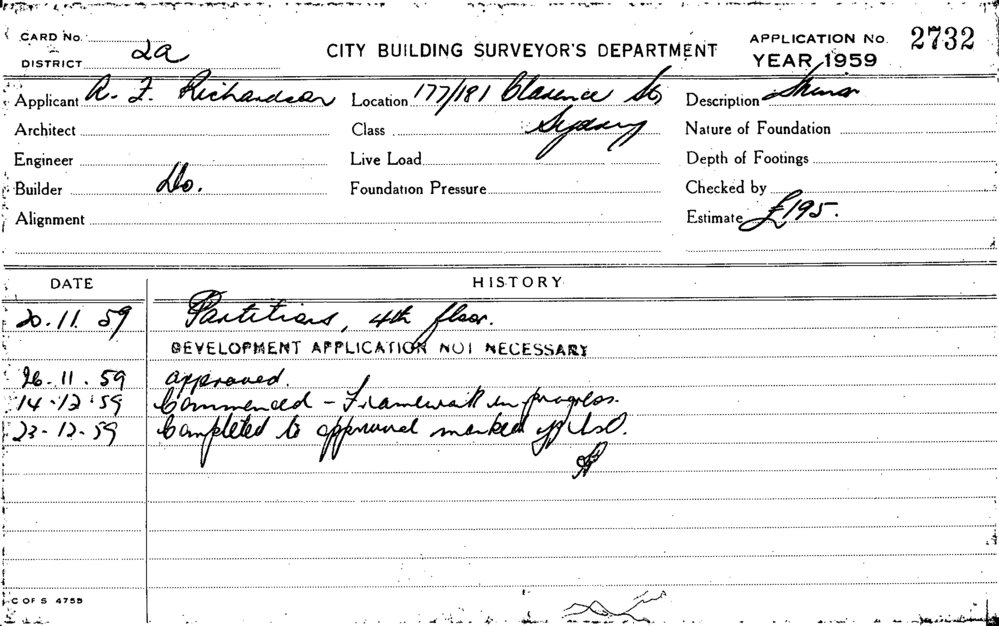 CARD No.
DISTRICT 2a
CITY BUILDING SURVEYOR'S DEPARTMENT
APPLICATION No. 2732
YEAR 1959
Applicant A. F. Richardson
Location 177/181 Clarence St,
Sydney
Description Minor
Architect
Class
Nature of Foundation
Engineer
Live Load
Depth of Footings
Builder Do.
Foundation Pressure
Checked by
Alignment
Estimate £195.
DATE HISTORY
20.11.59 Partitions, 4th floor.
DEVELOPMENT APPLICATION NOT NECESSARY
26.11.59 approved.
14.12.59 Commenced - Framework in progress.
23-12-59 Completed to approval marked off
C OF S 4755